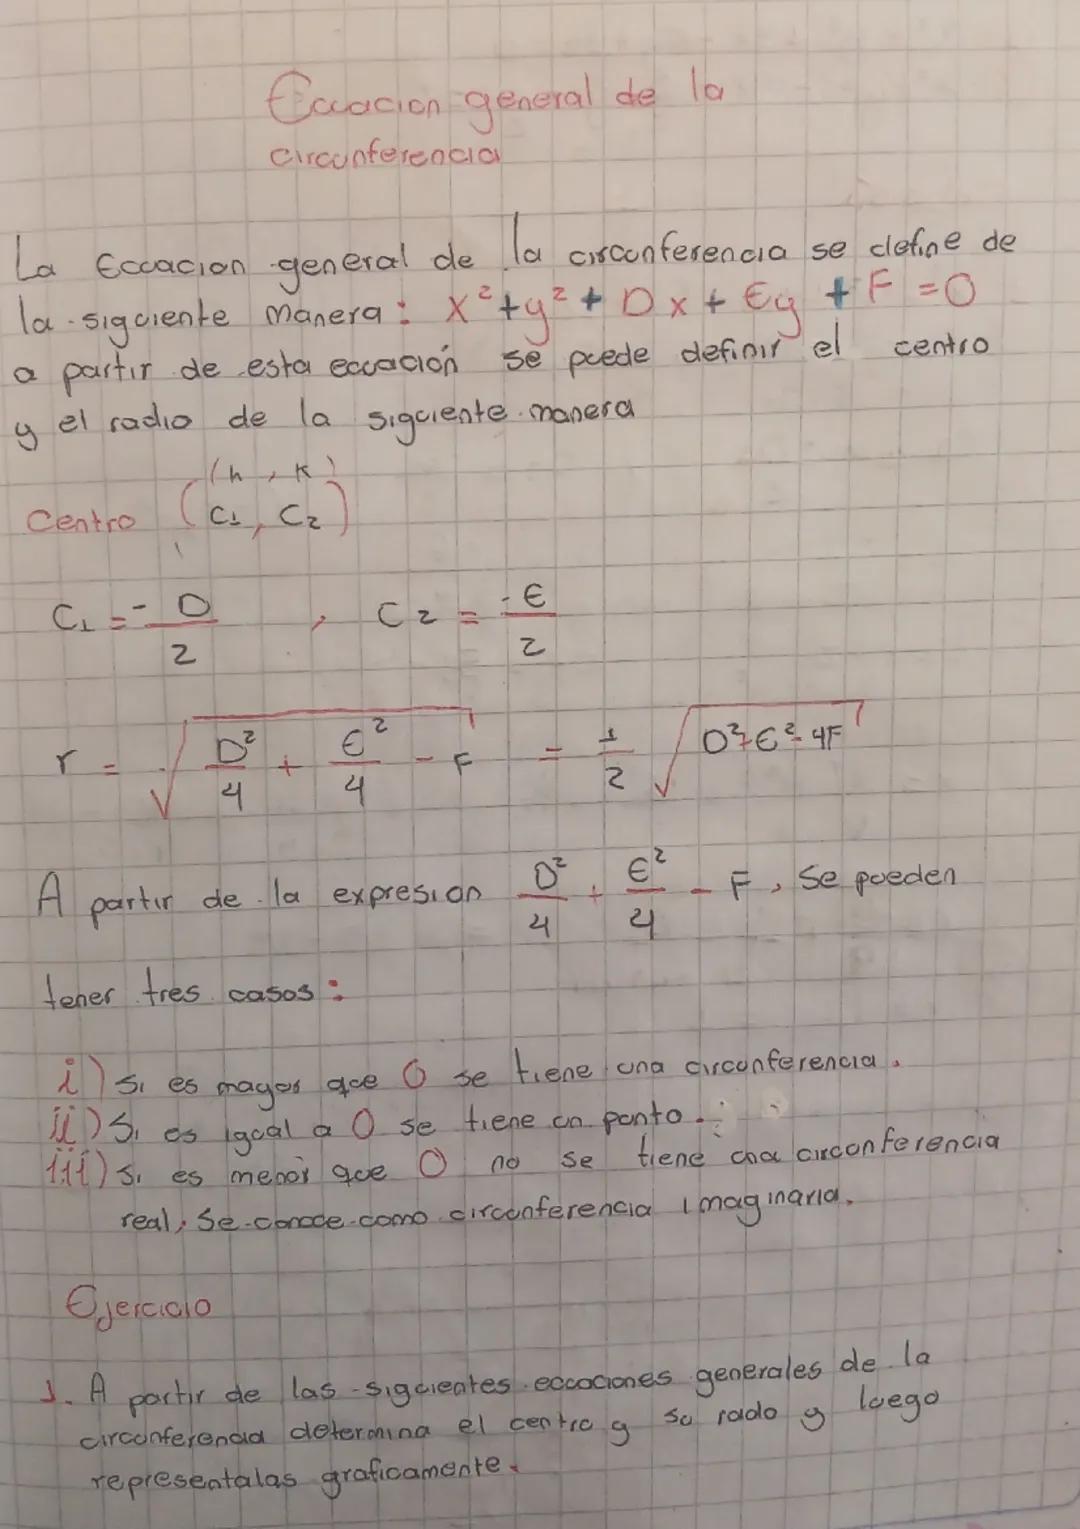 Ecuacion general de la
circunferencia
La Ecuacion general de la circunferencia se define de
la siguiente manera: x² + y² + Dx + Ey + F = 0
a partir de esta ecuación se puede definir el centro
y el radio de la siguiente manera
(h, K)
Centro (C₁, C₂)
C₁ = -D/2 , C₂ = -E/2
r = √(D²/4 + E²/4 - F) = 1/2 √(D²+E²-4F)
A partir de la expresion D²/4 + E²/4 - F, se pueden
tener tres casos:
i) Si es mayor que 0 se tiene una circunferencia.
ii) Si es igual a 0 se tiene un punto.
iii) Si es menor que 0 no se tiene una circunferencia
real, Se conoce como circunferencia imaginaria.
Ejercicio
1. A partir de las siguientes ecuaciones generales de la
circunferencia determina el centro y su radio y luego
representalas graficamente.